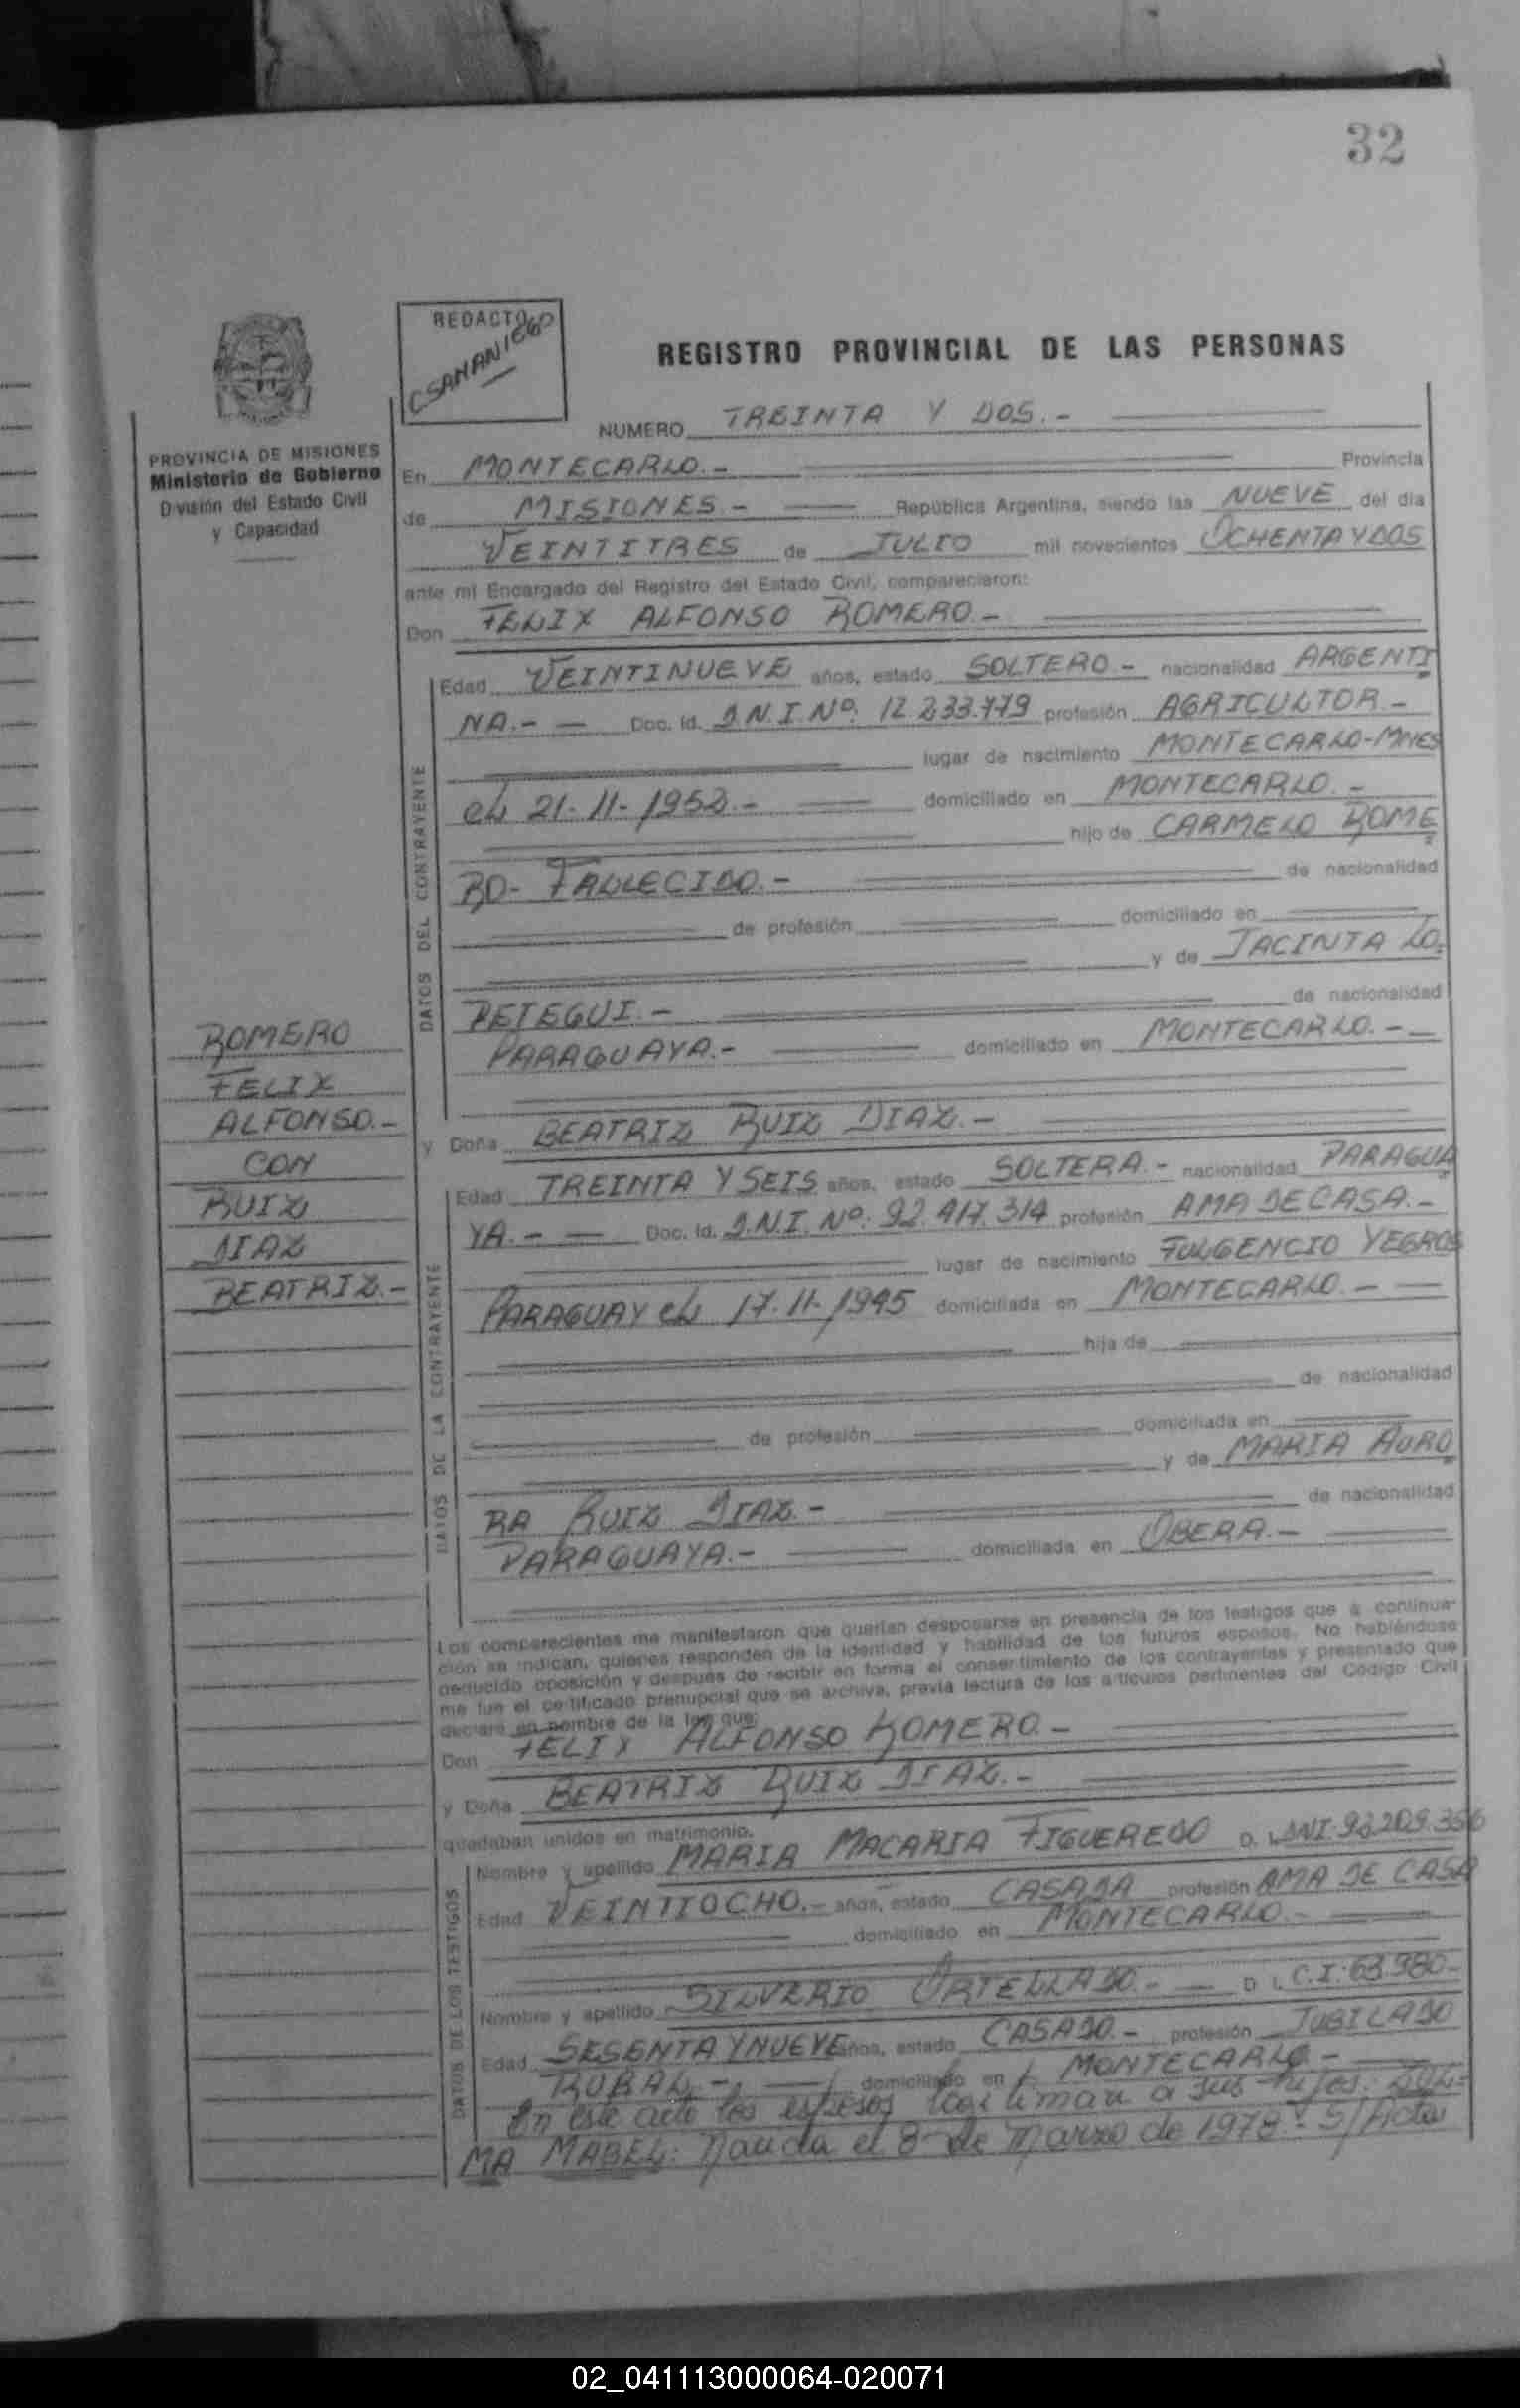 32
REDACTO
CSAMANIEGO
REGISTRO PROVINCIAL DE LAS PERSONAS
NUMERO TREINTA Y DOS.-
PROVINCIA DE MISIONES
Ministerio de Gobierno
División del Estado Civil
y Capacidad
En MONTECARLO.- Provincia
de MISIONES.- República Argentina, siendo las NUEVE del día
VEINTITRES de JULIO mil novecientos OCHENTA Y DOS
ante mi Encargado del Registro del Estado Civil, comparecieron:
Don FELIX ALFONSO ROMERO.-
DATOS DEL CONTRAYENTE
Edad VEINTINUEVE años, estado SOLTERO.- nacionalidad ARGENTI
NA.- - Doc. Id. D.N.I. Nº: 12.233.779 profesión AGRICULTOR.-
lugar de nacimiento MONTECARLO-MNES
el 21-11-1952.- domiciliado en MONTECARLO.-
hijo de CARMELO ROME
RO- FALLECIDO.- de nacionalidad
de profesión domiciliado en
y de JACINTA LO
PETEGUI.- de nacionalidad
PARAGUAYA.- domiciliado en MONTECARLO.-
ROMERO
FELIX
ALFONSO.-
CON
RUIZ
DIAZ
BEATRIZ.-
y Doña BEATRIZ RUIZ DIAZ.-
DATOS DE LA CONTRAYENTE
Edad TREINTA Y SEIS años, estado SOLTERA.- nacionalidad PARAGUA
YA.- - Doc. Id. D.N.I. Nº: 92.417.314 profesión AMA DE CASA.-
lugar de nacimiento FULGENCIO YEGROS
PARAGUAY el 17-11-1945 domiciliada en MONTECARLO.-
hija de
de nacionalidad
de profesión domiciliada en
y de MARIA AURO
RA RUIZ DIAZ.- de nacionalidad
PARAGUAYA.- domiciliada en OBERA.-
Los comparecientes me manifestaron que querían desposarse en presencia de los testigos que a continua-
ción se indican, quienes responden de la identidad y habilidad de los futuros esposos. No habiéndose
deducido oposición y después de recibir en forma el consentimiento de los contrayentes y presentado que
me fue el certificado prenupcial que se archiva, previa lectura de los artículos pertinentes del Código Civil
declaro en nombre de la ley que:
Don FELIX ALFONSO ROMERO.-
y Doña BEATRIZ RUIZ DIAZ.-
quedaban unidos en matrimonio.
DATOS DE LOS TESTIGOS
Nombre y apellido MARIA MACARIA FIGUEREDO D. I. DNI. 92.209.356
Edad VEINTIOCHO.- años, estado CASADA profesión AMA DE CASA
domiciliado en MONTECARLO.-
Nombre y apellido SILVERIO ORTELLADO.- D. I. C.I. 63.980-
Edad SESENTA Y NUEVE años, estado CASADO.- profesión JUBILADO
RURAL.- domiciliado en MONTECARLO.-
En este acto los esposos legitiman a sus hijos: ZUL-
MA MABEL: Nacida el 8 de Marzo de 1978.- S/Acta
02_041113000064-020071